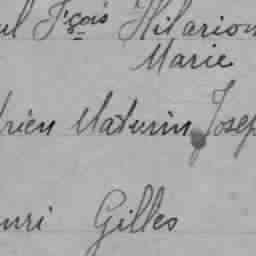 ul Fçois Hilarion
Marie
drien Maturin Josep
enri Gilles